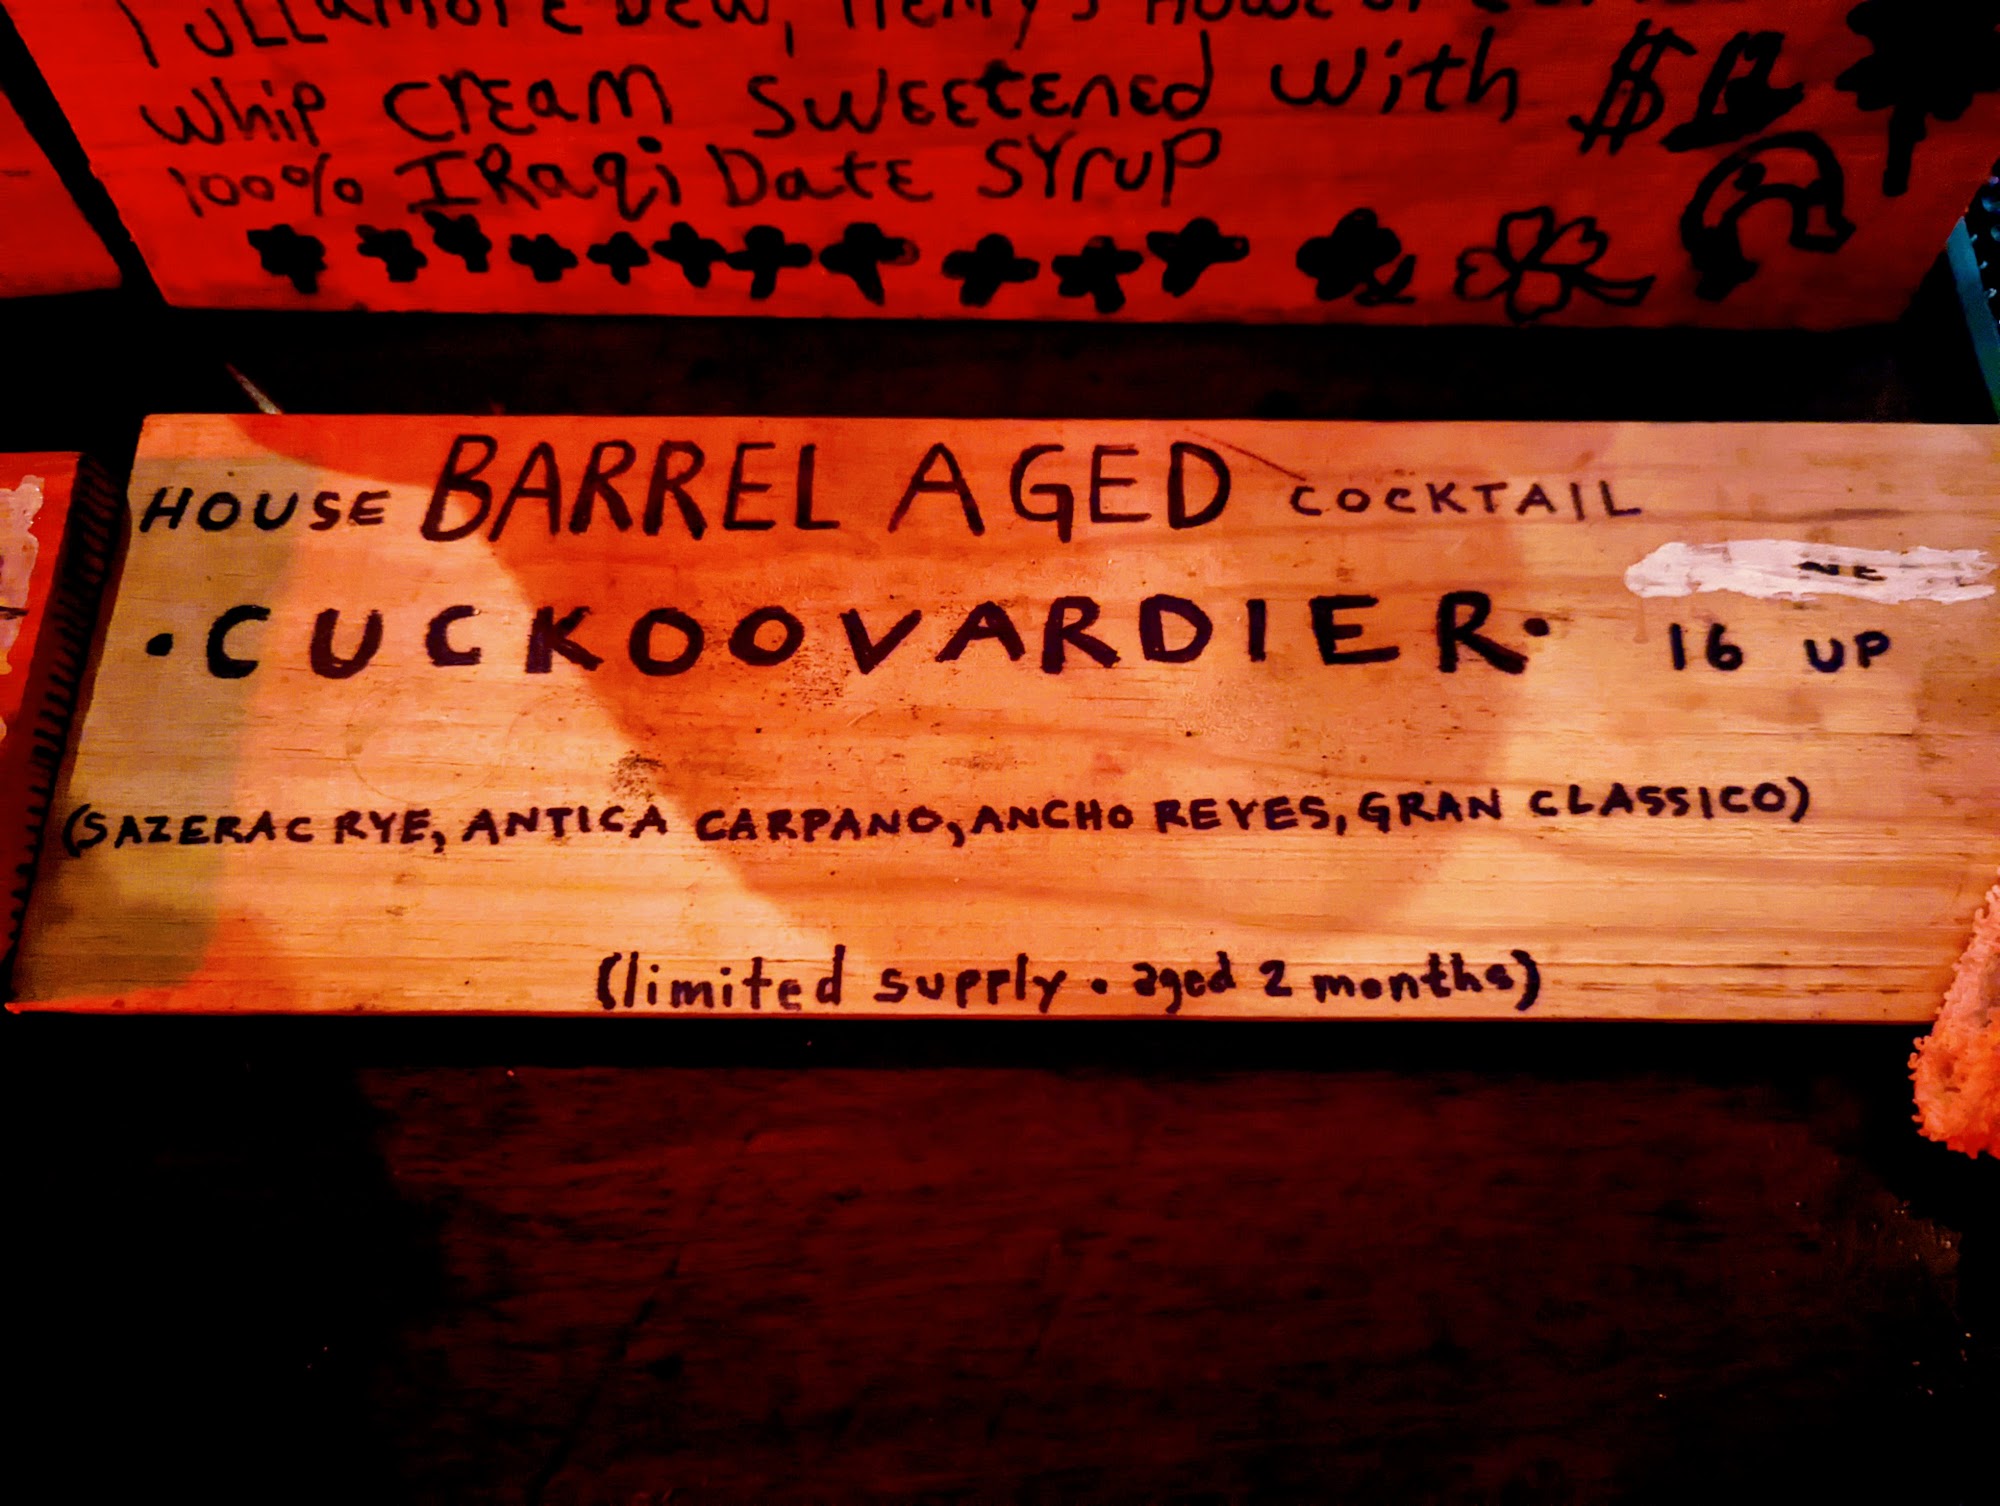 TULLAMORE DEW, Henry's House of
Whip CREAM SWEETENED With $12
100% IRaqi DatE SYRUP
HOUSE BARREL AGED COCKTAIL
·CUCKOOVARDIER·
16 UP
(SAZERAC RYE, ANTICA CARPANO, ANCHO REYES, GRAN CLASSICO)
(limited supply · aged 2 months)